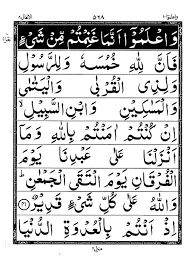 واعلموا ٥٦٨ الانفال
وَاعْلَمُوْۤا اَنَّمَا غَنِمْتُمْ مِّنْ شَیْءٍ
فَاَنَّ لِلّٰهِ خُمُسَهٗ وَ لِلرَّسُوْلِ
وَ لِذِی الْقُرْبٰی وَ الْیَتٰمٰی
وَ الْمَسٰكِیْنِ وَ ابْنِ السَّبِیْلِ ۙ
اِنْ كُنْتُمْ اٰمَنْتُمْ بِاللّٰهِ وَ مَاۤ
اَنْزَلْنَا عَلٰی عَبْدِنَا یَوْمَ
الْفُرْقَانِ یَوْمَ الْتَقَی الْجَمْعٰنِ ؕ
وَ اللّٰهُ عَلٰی كُلِّ شَیْءٍ قَدِیْرٌ ﴿۴۱﴾
اِذْ اَنْتُمْ بِالْعُدْوَةِ الدُّنْیَا